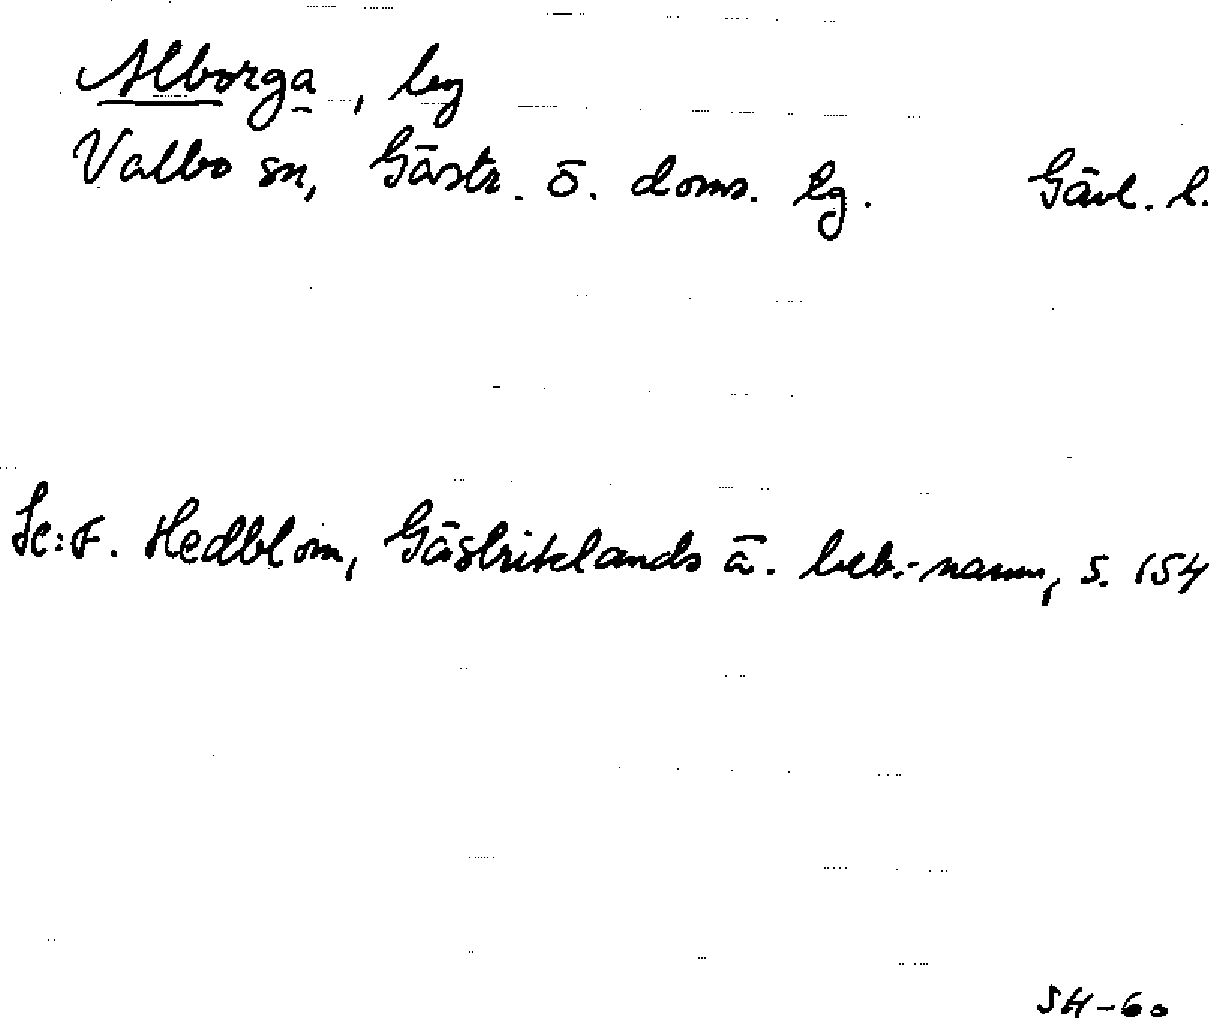 Alborga, by
Valbo sn, Gästr. ö. doms. lg. Gävl. l.
Se: F. Hedblom, Gästriklands ä. beb.-namn, s. 154
SH-60